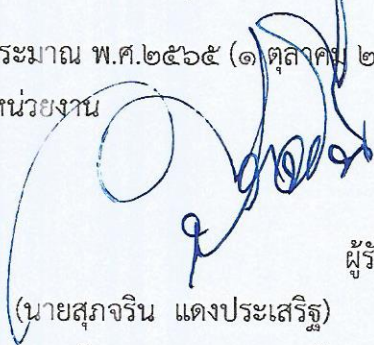 ระมาณ พ.ศ.๒๕๖๕ (๑ ตุลาคม ๒
หน่วยงาน
ผู้รั
(นายสุภจริน แดงประเสริฐ)